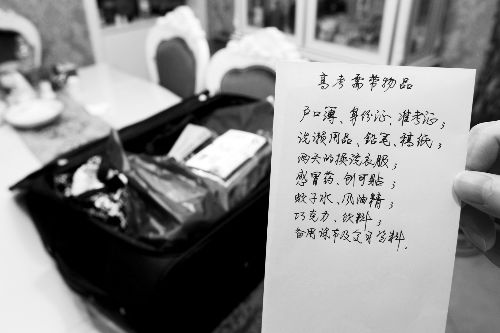 高考需带物品
户口薄、身份证、准考证；
洗漱用品、铅笔、稿纸；
两天的换洗衣服；
感冒药、创可贴；
蚊子水、风油精；
巧克力、饮料；
备用课本及复习资料．